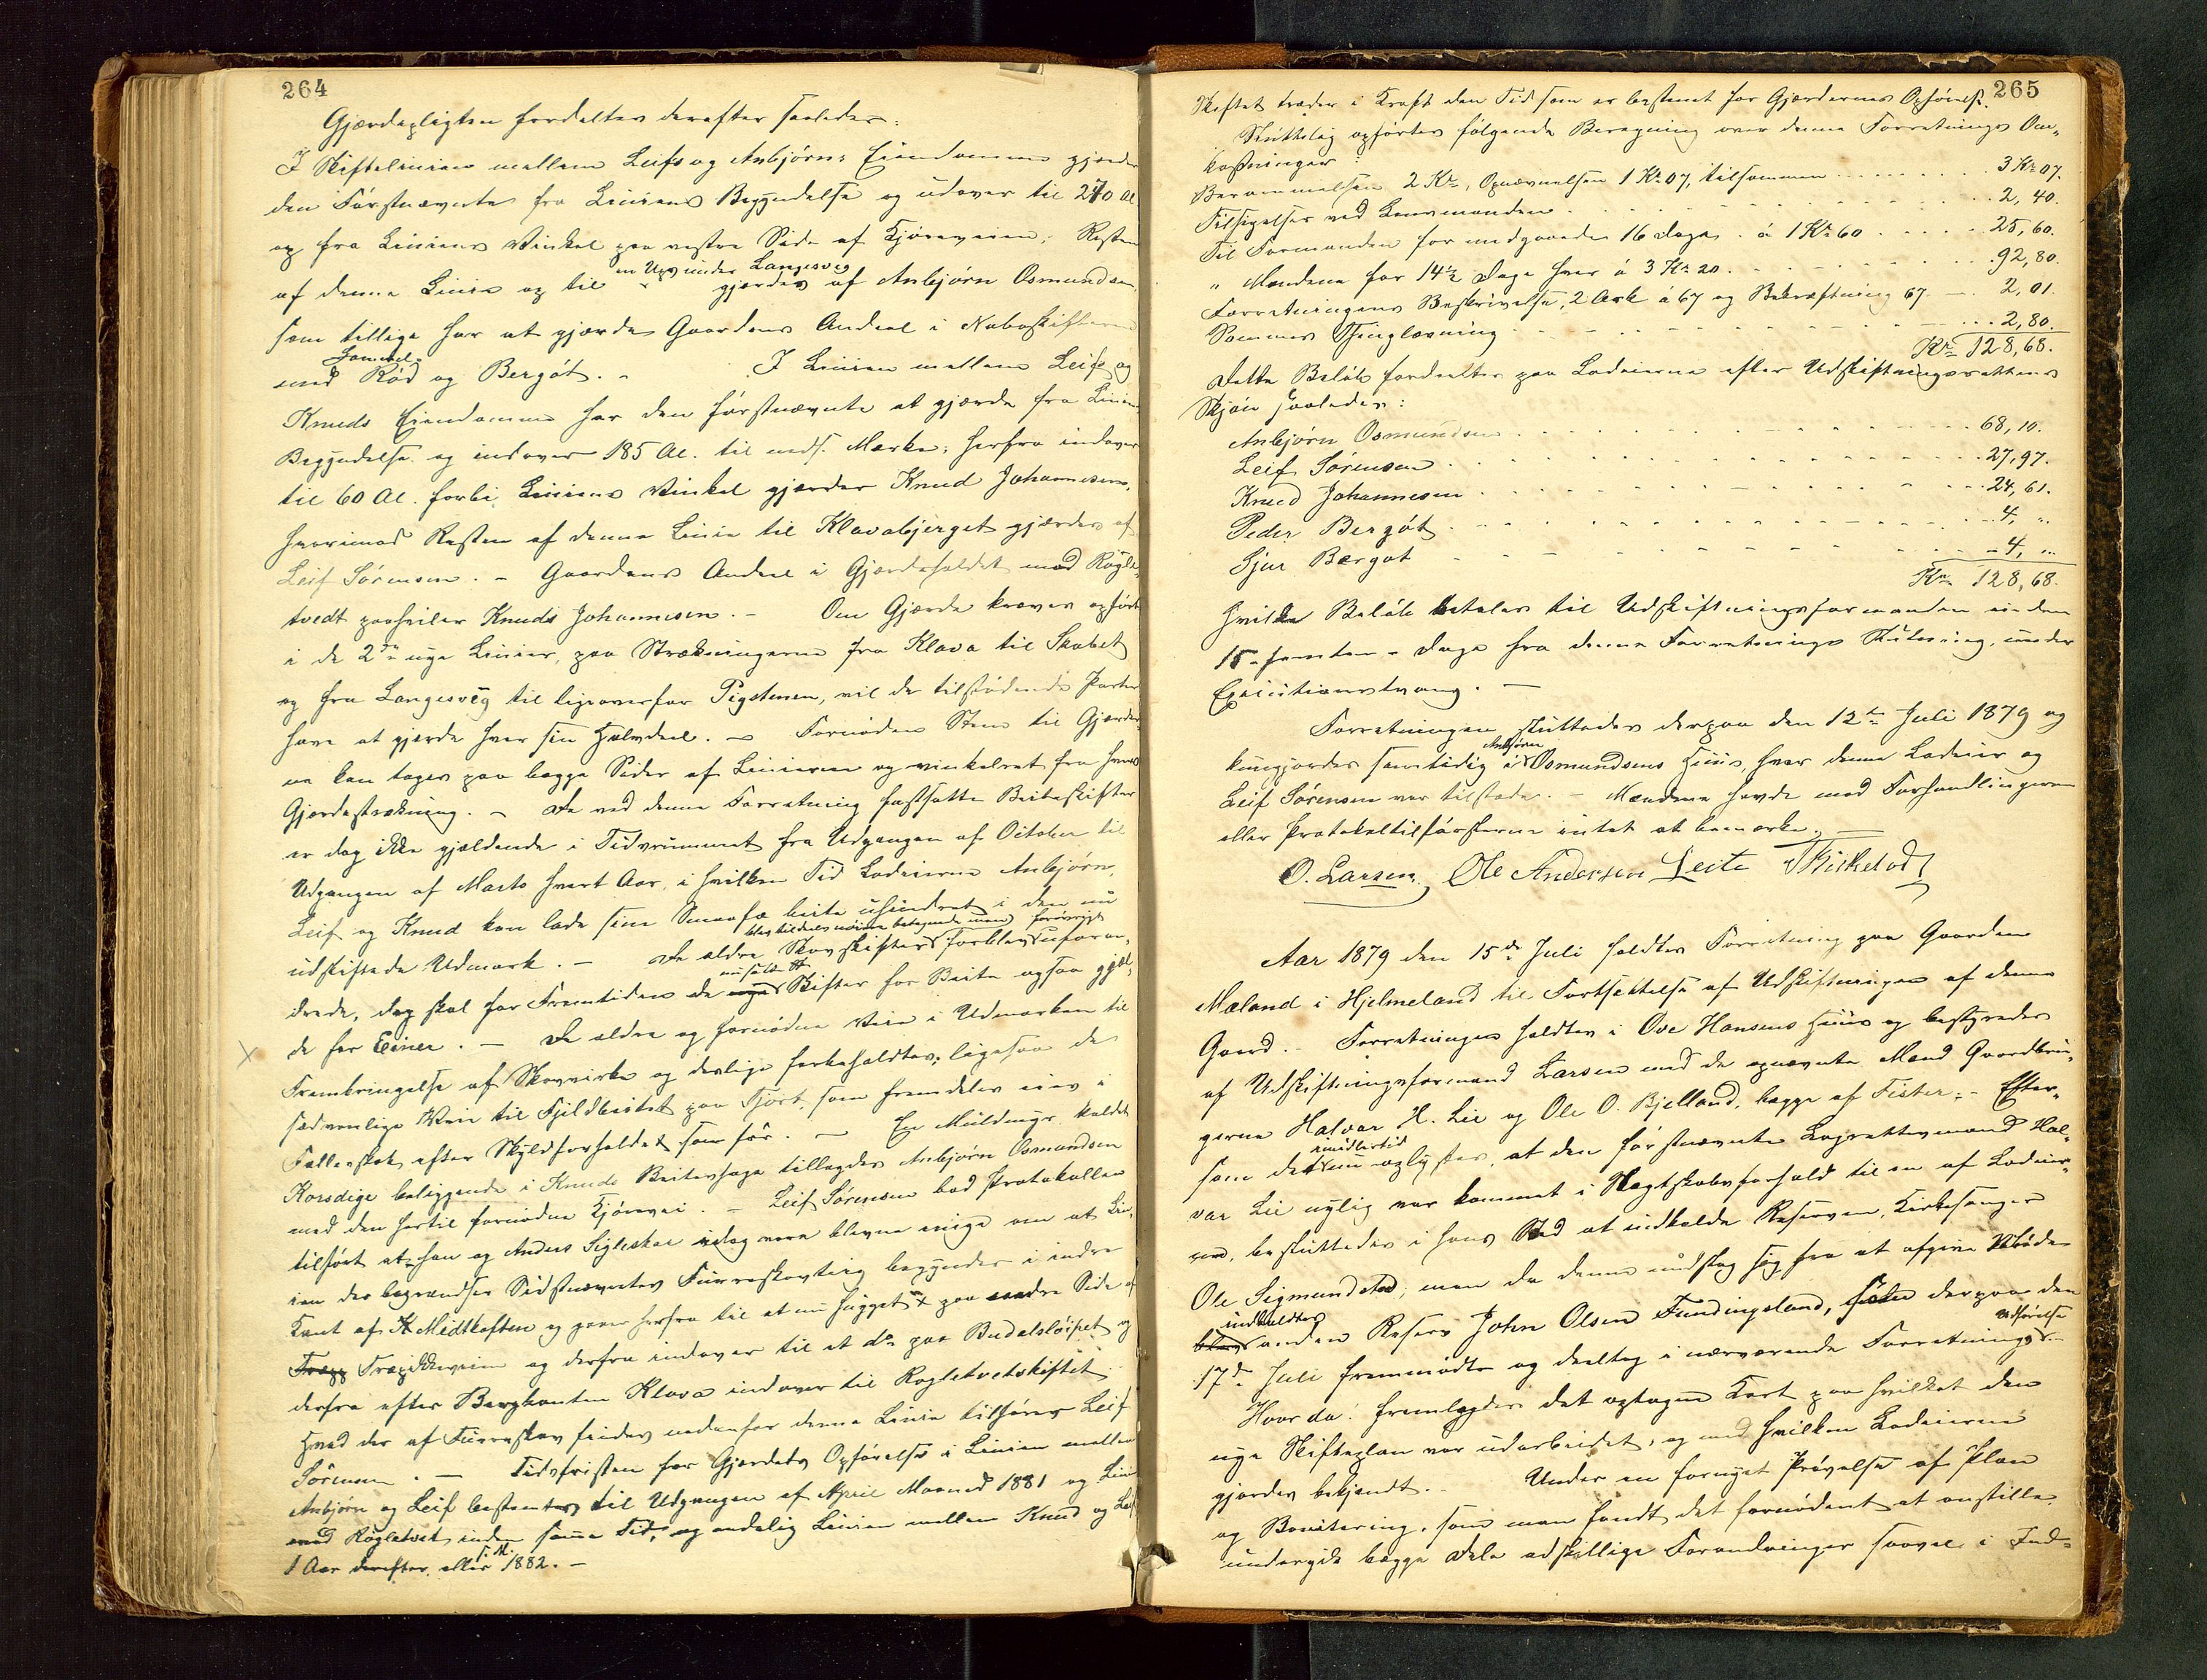 264
Gjærdepligten fordeltes derefter saaledes:
I Skiftelinien mellem Leifs og Anbjørns Eiendomme gjærder
den Førstnævnte fra Liniens Begyndelse og udover til 270 Al
og fra Liniens Vinkel paa vestre Side af Kjøreveien; Resten
af denne Linie og til en Ups under Langesvig gjærdes af Anbjørn Osmundsen
som tillige har at gjærde Gaardens Andeel i Naboskifterne
med Rød og Bergøt. – I Linien mellem Leifs og
Knuds Eiendomme har den førstnævnte at gjærde fra Liniens
Begyndelse og indover 185 Al. til neds. Mærke; herfra indover
til 60 Al. forbi Liniens Vinkel gjærder Knud Johannesen,
hvorimod Resten af denne Linie til Klavabjerget gjærdes af
Leif Sørensen. – Gaardens Andeel i Gjærdeholdet mod Røgle-
tvedt paahviler Knud Johannesen. – Om Gjærde kræves opført
i de 2de nye Linier, paa Strækningerne fra Klava til Skabet
og fra Langesvig til ligeoverfor Pigstenen, vil de tilstødende Parter
have at gjærde hver sin Halvdeel. – Fornøden Steen til Gjærder-
ne kan tages paa begge Sider af Linierne og vinkelret fra hver
Gjærdestrækning. – De ved denne Forretning fastsatte Beiteskifter
er dog ikke gjældende i Tidsrummet fra Udgangen af October til
Udgangen af Marts hvert Aar, i hvilken Tid Lodeierne Anbjørn,
Leif og Knud kan lade sine Smaafæ beite uhindret i den nu
udskiftede Udmark. – De ældre Skovskifter blev tildeels nøiere betegnede men forøvrigt forblev uforan-
drede, dog skal for Fremtiden de nye Skifter for Beite ogsaa gjæl-
de for Einer. – De ældre og fornødne Veie i Udmarken til
Frembringelse af Skovvirke og deslige forbeholdtes, ligesaa de
sædvanlige Veie til Fjeldbeitet paa Fjört, som fremdeles eies i
Fællesskab efter Skyldforholdet som før. – En Muldmyr kaldet
Korsdige beliggende i Knuds Beiteshage tillagdes Anbjørn Osmundsen
med den hertil fornødne Kjørevei. – Leif Sørensen bad Protokollen
tilført at han og Anders Sigleskar idag vare blevne enige om at Lin-
ien der begrændser Sidstnævntes Furreskovteig begynder i indre
Kant af Midtkeften og gaar herfra til et nu hugget x paa Side af
Træpikkerim og derfra indover til et do paa Budalsløipet og
derfra efter Bergkanten Klava indover til Rogletvetskiftet.
Hvad der af Furreskov findes nedenfor denne Linie tilhører Leif
Sørensen. – Tidsfristen for Gjærdets Opførelse i Linien mellem
Anbjørn og Leif bestemtes til Udgangen af April Maaned 1881 og Linien
mod Røgletvet inden samme Tid, og endelig Linien mellem Knud og Leif
1 Aar derefter eller 1882. –
265
Skiftet træder i Kraft den Tid som er bestemt for Gjærdernes Opførelse.
Sluttelig opførtes følgende Beregning over denne Forretnings Om-
kostninger:
Berammelsen 2 Kr, Opnævnelsen 1 Kr 07, tilsammen . . . . 3 Kr 07.
Tilsigelser ved Lensmanden . . . . 2, 40.
Til Formanden for medgaaede 16 Dage á 1 Kr 60 . . . . 25, 60.
" Mændene for 14½ Dage hver á 3 Kr 20 . . . . 92, 80.
Forretningens Beskrivelse, 2 Ark á 67 og Bekræftning 67 . . 2, 01.
Sammes Thinglæsning . . . . 2, 80.
Kr 128, 68.
Dette Beløb fordeeltes paa Lodeierne efter Udskiftningsrettens
Skjøn saaledes:
Anbjørn Osmundsen . . . . 68, 10.
Leif Sørensen . . . . 27, 97.
Knud Johannesen . . . . 24, 61.
Peder Bergøt . . . . 4, "
Sjur Bergøt . . . . 4, "
Kr 128, 68.
Hvilke Beløb betales til Udskiftningsformanden inden
15 – femten – Dage fra denne Forretnings Slutning, under
Executionstvang. –
Forretningen sluttedes derpaa den 12te Juli 1879 og
kungjordes samtidig i Anbjørn Osmundsens Huus, hvor denne Lodeier og
Leif Sørensen var tilstede. – Mændene havde mod Forhandlingerne
eller Protokoltilførslerne intet at bemærke. –
O. Larsen, Ole Andersen Leite
Aar 1879 den 15de Juli holdtes Forretning paa Gaarden
Mæland i Hjelmeland til Fortsættelse af Udskiftningen af denne
Gaard. – Forretningen holdtes i Ove Hansens Huus og bestyredes
af Udskiftningsformand Larsen med de opnævnte Mænd Gaardbru-
gerne Halvar H. Lie og Ole O. Bjelland, begge af Fister. – Efter-
som det imidlertid nu oplystes, at den førstnævnte Lagrettesmand Hal-
var Lie nylig var kommet i Slægtskabsforhold til en af Lodeier-
ne, besluttedes i hans Sted at indkalde Reserven, Kirkesanger
Ole Sigmundstad; men da denne undslog sig fra at afgive Møde
blev indkaldtes anden Reserv John Olsen Fundingsland, som derpaa den
17de Juli fremmødte og deeltog i nærværende Forretnings Udførelse
Hvorda: fremlagdes det optagne Kart paa hvilket den
nye Skifteplan var udarbeidet, og med hvilken Lodeierne
gjordes bekjendt. – Under en fornyet Prøvelse af Plan
og Bonitering, som man fandt det fornødent at anstille,
undergik begge Dele adskillige Forandringer saavel i Ind-